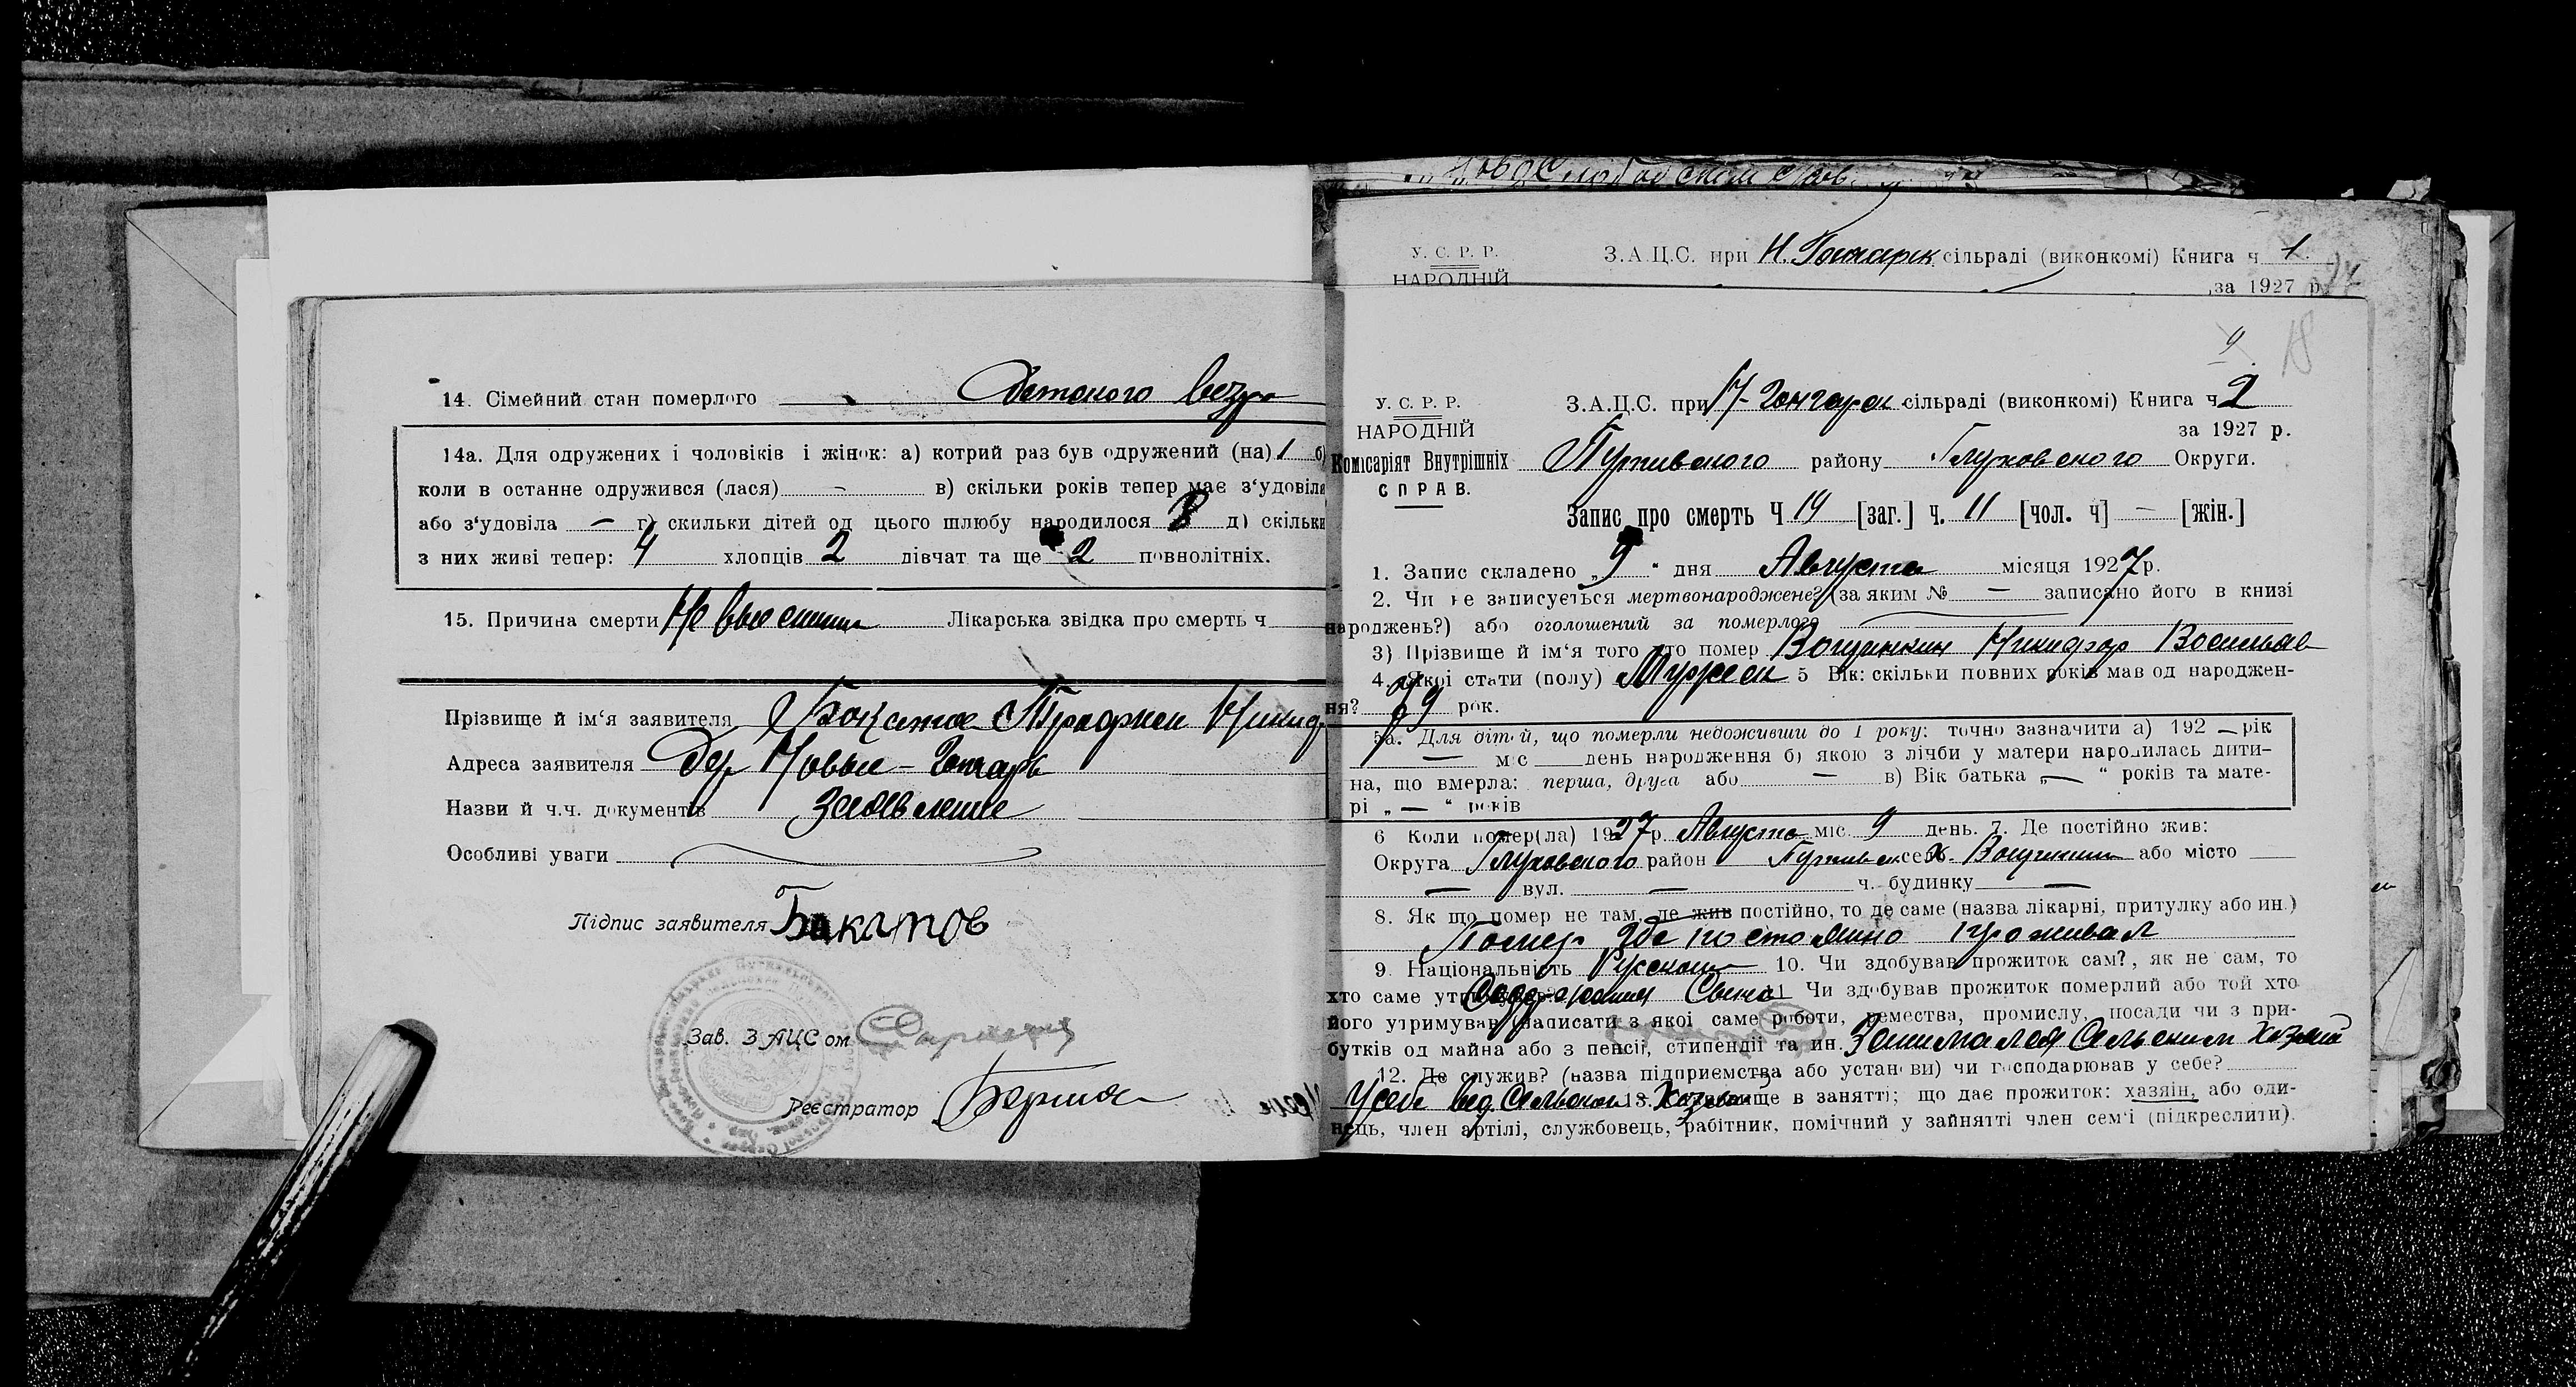 14. Сімейний стан померлого Детского возра
14а. Для одружених і чоловіків і жінок: а) котрий раз був одружений (на) 1 б)
коли в останне одружився (лася) — в) скільки років тепер має з‘удовіла
або з‘удовіла — г) скильки дітей од цього шлюбу народилося 8 д) скільки
з них живі тепер: 4 хлопців 2 дівчат та ще 2 повнолітніх.
15. Причина смерти Лікарська звідка про смерть ч
Прізвище й ім‘я заявителя
Адреса заявителя дер Новые-Гончары
Назви й ч.ч. документів заявление
Особливі уваги
Підпис заявителя Бакатов
Зав. ЗАЦСом
Реєстратор
У. С. Р. Р.
НАРОДНІЙ
З.А.Ц.С. при Н. Гончарск сільраді (виконкомі) Книга ч 1.
за 1927 р.
9
18
У. С. Р. Р. З.А.Ц.С. при Н-Гончарск сільраді (виконкомі) Книга ч 2
НАРОДНІЙ за 1927 р.
Комісаріят Внутрішніх Путивского району Глуховского Округи.
СПРАВ.
Запис про смерть Ч 19 [заг.] ч. 11 [чол. ч] — [жін.]
1. Запис складено „9“ дня Августа місяця 1927 р.
2. Чи не записується мертвонароджене? (за яким № — записано його в книзі
народжень?) або оголошений за померлого
3) Прізвище й ім‘я того хто помер Вощинкин Никифор Васильев
4. Якої стати (полу) Мужск 5 Вік: скільки повних років мав од народжен-
ня? рок.
5а. Для дітей, що померли недоживши до 1 року: точно зазначити а) 192 — рік
— міс день народження б) якою з лічби у матери народилась дити-
на, що вмерла: перша, друга або — в) Вік батька „—“ років та мате-
рі „—“ років
6 Коли помер(ла) 1927 р. Августа міс. 9 день. 7. Де постійно жив:
Округа Глуховского район Путивльск село х. Вощинин або місто
— вул. — ч. будинку —
8. Як що помер не там, де жив постійно, то де саме (назва лікарні, притулку або ин.)
Помер где постоянно проживал
9. Національність Русская 10. Чи здобував прожиток сам?, як не сам, то
хто саме утримував Содержания Сына 11 Чи здобував прожиток померлий або той хто
його утримував (записати з якої саме роботи, ремества, промислу, посади чи з при-
бутків од майна або з пенсії, стипендії та ин. Занимался Сельским Хазяй
12. Де служив? (назва підприємства або установи) чи господарював у себе?
У себе вед. Сельское Хазяй 13. Становище в занятті; що дає прожиток: хазяїн, або оди-
нець, член артілі, службовець, рабітник, помічний у зайнятті член сем‘ї (підкреслити).